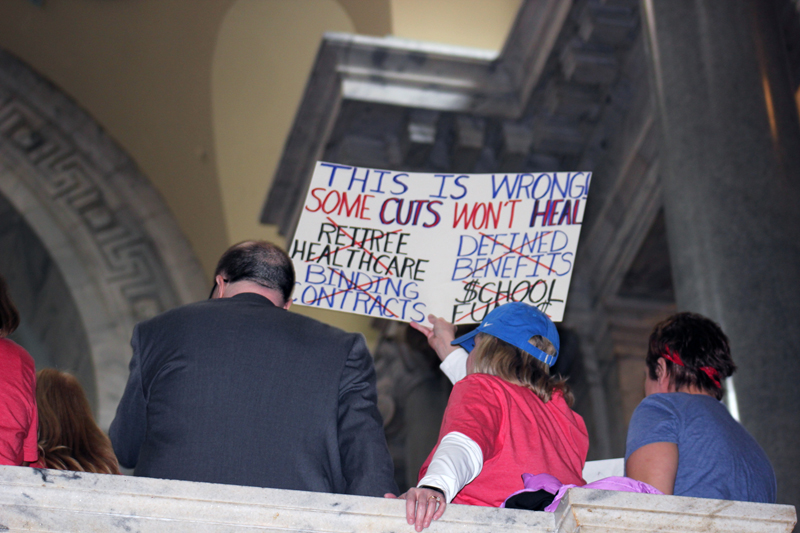 THIS IS WRONG!
SOME CUTS WON'T HEAL
RETIREE
HEALTHCARE
BINDING
CONTRACTS
DEFINED
BENEFITS
$CHOOL
FUND$